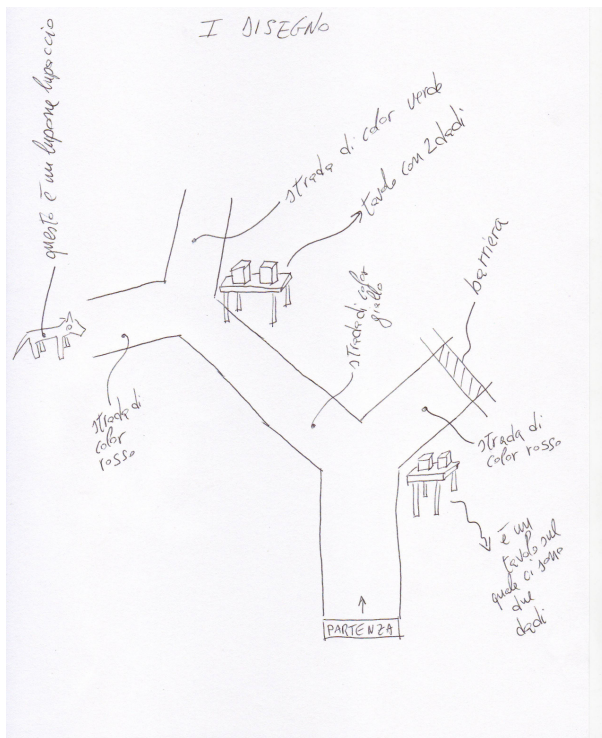 I DISEGNO
questo è un lupone lupaccio
strada di color verde
tavolo con 2 dadi
barriera
strada di color
giallo
strada di
color
rosso
strada di
color rosso
è un
tavolo sul
quale ci sono
due
dadi
PARTENZA